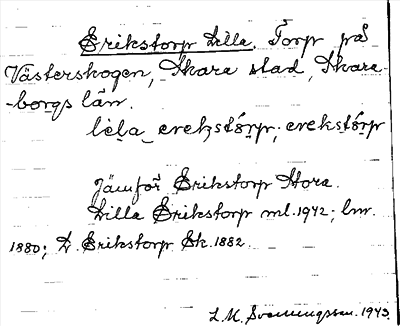 Erikstorp Lilla. Torp på
Västerskogen, Skara stad, Skara-
-borgs län.
lėla erekstórp; erekstórp
Jämför Erikstorp Stora.
Lilla Erikstorp ml. 1942; lmr.
1880; L. Erikstorp Sk. 1882.
L. M. Svenungsson. 1943.